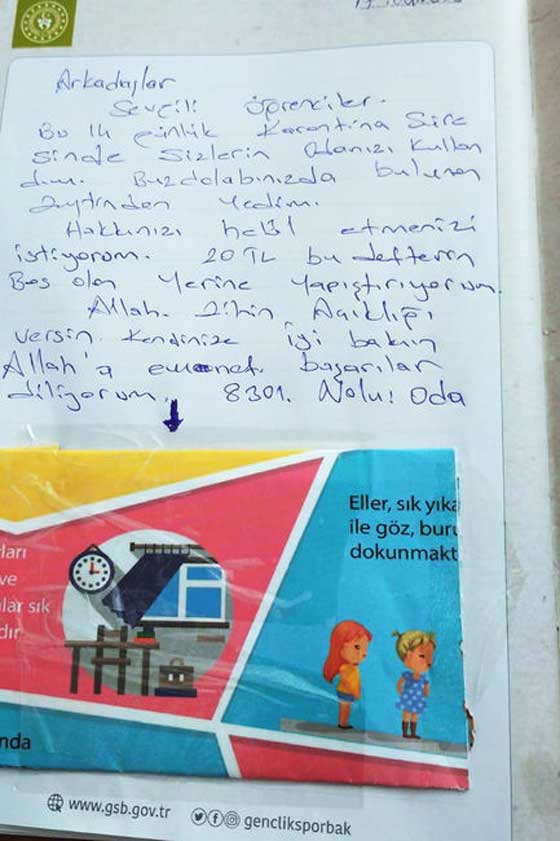 Arkadaşlar
Sevgili Öğrenciler.
Bu 14 günlük Karantina Süre
sinde Sizlerin Odanızı kullan
dım. Buzdolabınızda bulunan
Zeytinden Yedim.
Hakkınızı helâl etmenizi
istiyorum. 20 TL bu defterin
Boş olan Yerine Yapıştırıyorum.
Allah. Zihin Açıklığı
versin. Kendinize iyi bakın
Allah'a emanet. başarılar
diliyorum. 8301. Nolu: Oda
Eller, sık yıka
ile göz, buru
dokunmakt
ları
ve
lar sık
dır
nda
www.gsb.gov.tr
gencliksporbak